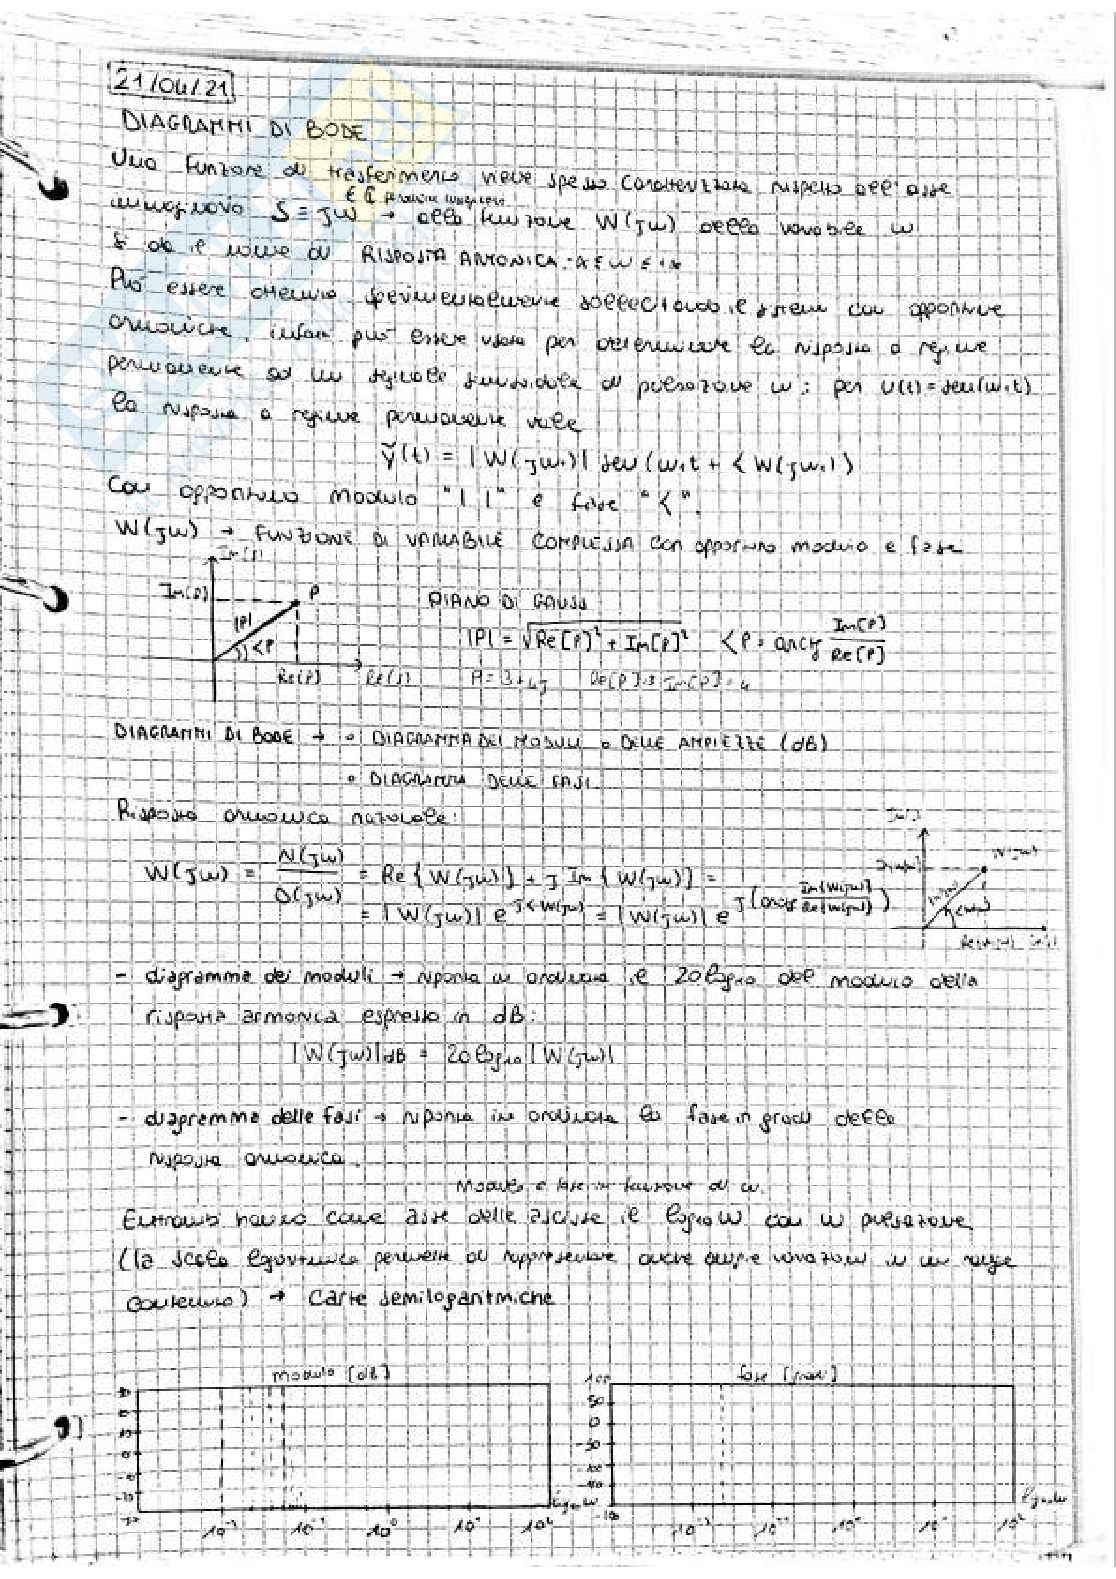 21/04/21
DIAGRAMMI DI BODE
Una funzione di trasferimento viene spesso caratterizzata rispetto all'asse
∈ ℂ
immaginario S = jω → alla funzione W(jω) della variabile ω
si dà il nome di RISPOSTA ARMONICA
Può essere ottenuta sperimentalmente sollecitando il sistema con opportune
armoniche, infatti può essere usata per determinare la risposta a regime
permanente ad un segnale sinusoidale di pulsazione ω: per u(t) = sen(ω₁t)
la risposta a regime permanente vale
ỹ(t) = |W(jω₁)| sen(ω₁t + ∠W(jω₁))
Con opportuno modulo "| |" e fase "∠".
W(jω) → FUNZIONE DI VARIABILE COMPLESSA con opportuno modulo e fase
Im(s)
Im(P) P
PIANO DI GAUSS
|P| ∠P
|P| = √Re[P]² + Im[P]² ∠P = arctg Im[P]/Re[P]
Re(P) Re(s) P = 3+4j Re[P]=3 Im[P]=4
DIAGRAMMI DI BODE → • DIAGRAMMA DEI MODULI o DELLE AMPIEZZE (dB)
• DIAGRAMMA DELLE FASI
Risposta armonica naturale:
W(jω) = N(jω)/D(jω) = Re{W(jω)} + j Im{W(jω)} =
= |W(jω)| e^j∠W(jω) = |W(jω)| e^j(arctg Im{W(jω)}/Re{W(jω)})
- diagramma dei moduli → riporta in ordinata il 20log₁₀ del modulo della
risposta armonica espresso in dB:
|W(jω)|dB = 20log₁₀|W(jω)|
- diagramma delle fasi → riporta in ordinata la fase in gradi della
risposta armonica.
Modulo e fase in funzione di ω.
Entrambi hanno come asse delle ascisse il log₁₀ω con ω pulsazione
(la scala logaritmica permette di rappresentare anche ampie variazioni in un range
contenuto) → Carte semilogaritmiche
modulo [dB] fase [gradi]
100
50
0
-50
-100
10⁰ 10² 10²